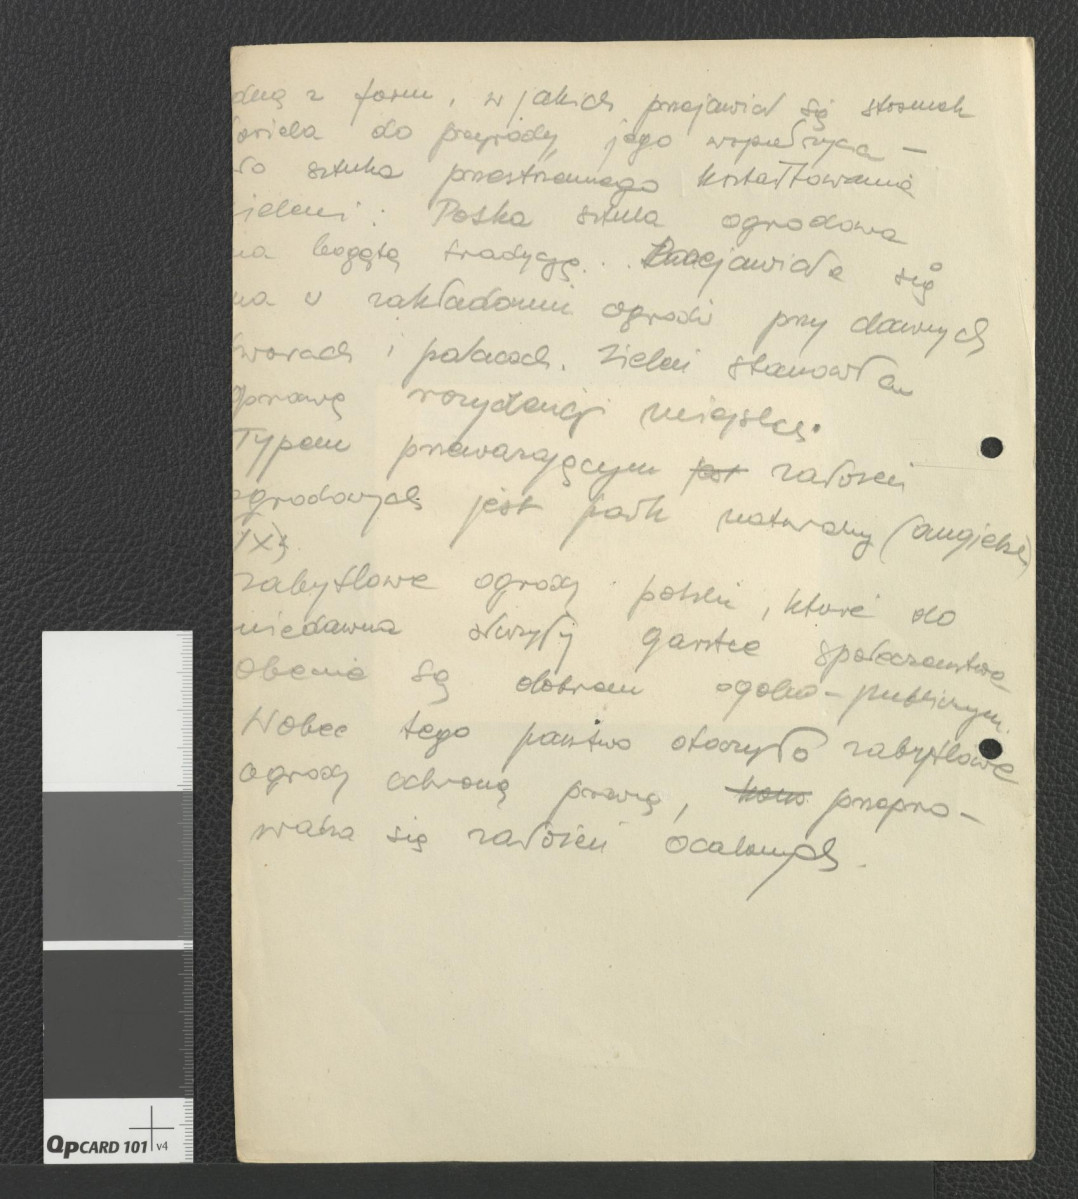 dną z form, w jakich przejawiał się stosunek
owieka do przyrody jego współżycia —
to sztuka przestrzennego kształtowania
zieleni. Polska sztuka ogrodowa
ma bogatą tradycję. Przejawiała się
na u zakładaniu ogrodów przy dawnych
dworach i pałacach. Zieleń stanowiła
oprawę rezydencji miejskiej.
Typem przeważającym jest założeń
ogrodowych jest park naturalny (angielski)
zabytkowe ogrody polskie, które do
niedawna służyły garstce społeczeństwa
obecnie są dobrem ogólno-publicznym.
Wobec tego państwo otoczyło zabytkowe
ogrody ochroną prawną, przepro-
wadza się założeń ocalonych.
QPCARD 101 v4